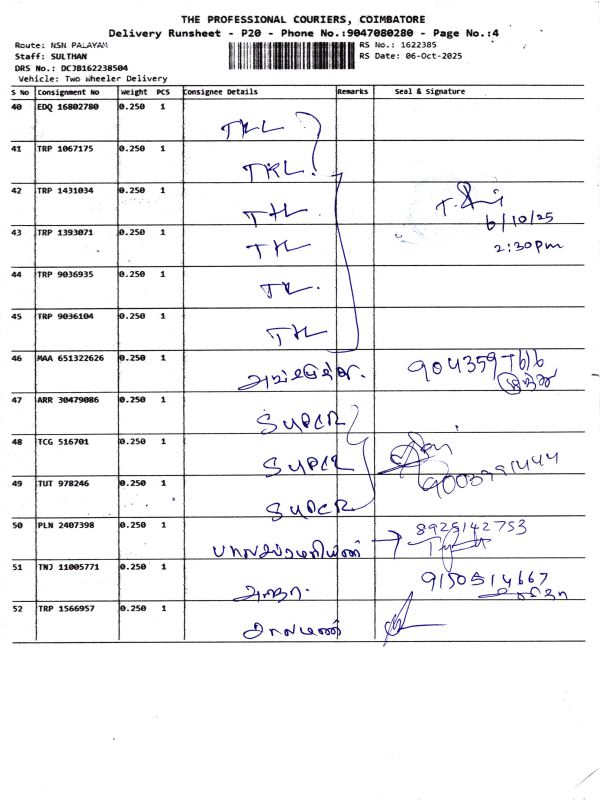 THE PROFESSIONAL COURIERS, COIMBATORE
Delivery Runsheet - P20 - Phone No.:9047080280 - Page No.:4
Route: NSN PALAYAM
RS No.: 1622385
Staff: SULTHAN
RS Date: 06-Oct-2025
DRS No.: DCJB162238504
Vehicle: Two Wheeler Delivery
S No Consignment No Weight PCS Consignee Details Remarks Seal & Signature
40 EDQ 16802780 0.250 1
TKL
41 TRP 1067175 0.250 1
TKL.
42 TRP 1431034 0.250 1
TKL
6/10/25
43 TRP 1393071 0.250 1
TKL
2:30pm
44 TRP 9036935 0.250 1
TKL.
45 TRP 9036104 0.250 1
TKL
46 MAA 651322626 0.250 1
47 ARR 30479086 0.250 1
SUPER
48 TCG 516701 0.250 1
SUPER
49 TUT 978246 0.250 1
SUPER
50 PLN 2407398 0.250 1
8925142753
பாலசுப்ரமணியன்
51 TNJ 11005771 0.250 1
9150514667
52 TRP 1566957 0.250 1